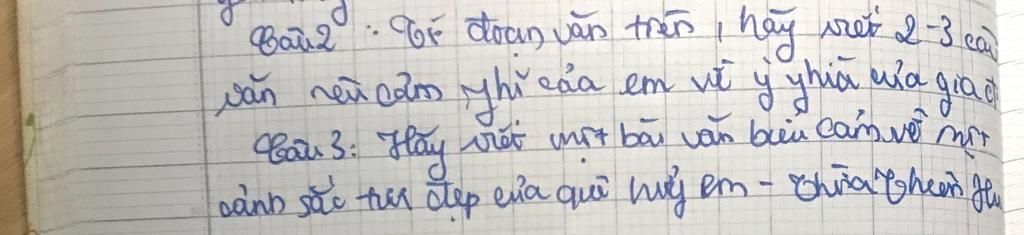 Câu 2: Từ đoạn văn trên, hãy viết 2-3 câu
văn nêu cảm nghĩ của em về ý nghĩa của gia đ
Câu 3: Hãy viết một bài văn biểu cảm về một
cảnh sắc tươi đẹp của quê hương em - Thừa Thiên Hu